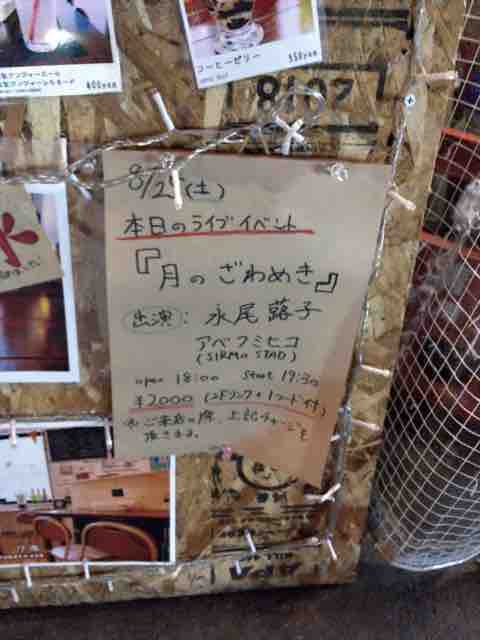 コーヒーゼリー
550yen
400yen
8/25(土)
本日のライブイベント
『月のざわめき』
出演: 永尾蕗子
アベフミヒコ
(SIRMO STAD)
open 18:00 Start 19:30
¥2000 (1ドリンク+1フード付)
※ご来店の際、上記チャージを
頂きます。